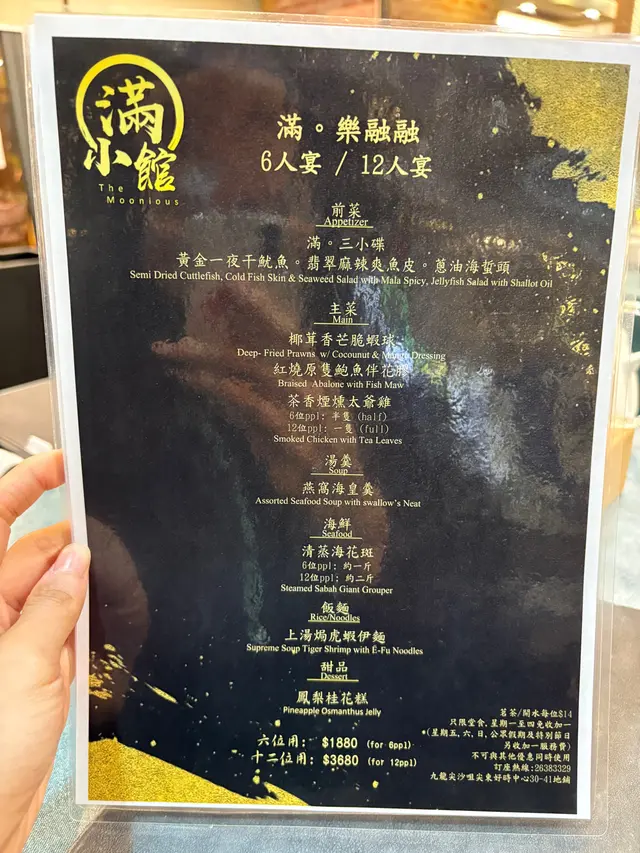 滿
小館
The
Moonious
滿。樂融融
6人宴 / 12人宴
前菜
Appetizer
滿。三小碟
黃金一夜干魷魚。翡翠麻辣爽魚皮。蔥油海蜇頭
Semi Dried Cuttlefish, Cold Fish Skin & Seaweed Salad with Mala Spicy, Jellyfish Salad with Shallot Oil
主菜
Main
椰茸香芒脆蝦球
Deep- Fried Prawns w/ Cocounut & Mango Dressing
紅燒原隻鮑魚伴花膠
Braised Abalone with Fish Maw
茶香煙燻太爺雞
6位ppl: 半隻 (half)
12位ppl: 一隻 (full)
Smoked Chicken with Tea Leaves
湯羹
Soup
燕窩海皇羹
Assorted Seafood Soup with swallow's Neat
海鮮
Seafood
清蒸海花斑
6位ppl: 約一斤
12位ppl: 約二斤
Steamed Sabah Giant Grouper
飯麵
Rice/Noodles
上湯焗虎蝦伊麵
Supreme Soup Tiger Shrimp with E-Fu Noodles
甜品
Dessert
鳳梨桂花糕
Pineapple Osmanthus Jelly
六位用: $1880 (for 6ppl)
十二位用: $3680 (for 12ppl)
茗茶/開水每位$14
只限堂食,星期一至四免收加一
*(星期五,六,日,公眾假期及特別節日
另收加一服務費)
不可與其他優惠同時使用
訂座熱線:26383329
九龍尖沙咀尖東好時中心30-41地鋪